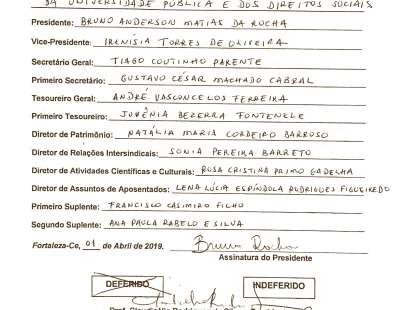 DA UNIVERSIDADE PÚBLICA E DOS DIREITOS SOCIAIS
Presidente: BRUNO ANDERSON MATIAS DA ROCHA
Vice-Presidente: IRENÍSIA TORRES DE OLIVEIRA
Secretário Geral: TIAGO COUTINHO PARENTE
Primeiro Secretário: GUSTAVO CÉSAR MACHADO CABRAL
Tesoureiro Geral: ANDRÉ VASCONCELOS FERREIRA
Primeiro Tesoureiro: JUVÊNIA BEZERRA FONTENELE
Diretor de Patrimônio: NATÁLIA MARIA CORDEIRO BARROSO
Diretor de Relações Intersindicais: SONIA PEREIRA BARRETO
Diretor de Atividades Científicas e Culturais: ROSA CRISTINA PRIMO GADELHA
Diretor de Assuntos de Aposentados: LENA LÚCIA ESPÍNDOLA RODRIGUES FIGUEIREDO
Primeiro Suplente: FRANCISCO CASIMIRO FILHO
Segundo Suplente: ANA PAULA RABELO E SILVA
Fortaleza-Ce, 01 de Abril de 2019. Bruno Rocha
Assinatura do Presidente
DEFERIDO INDEFERIDO